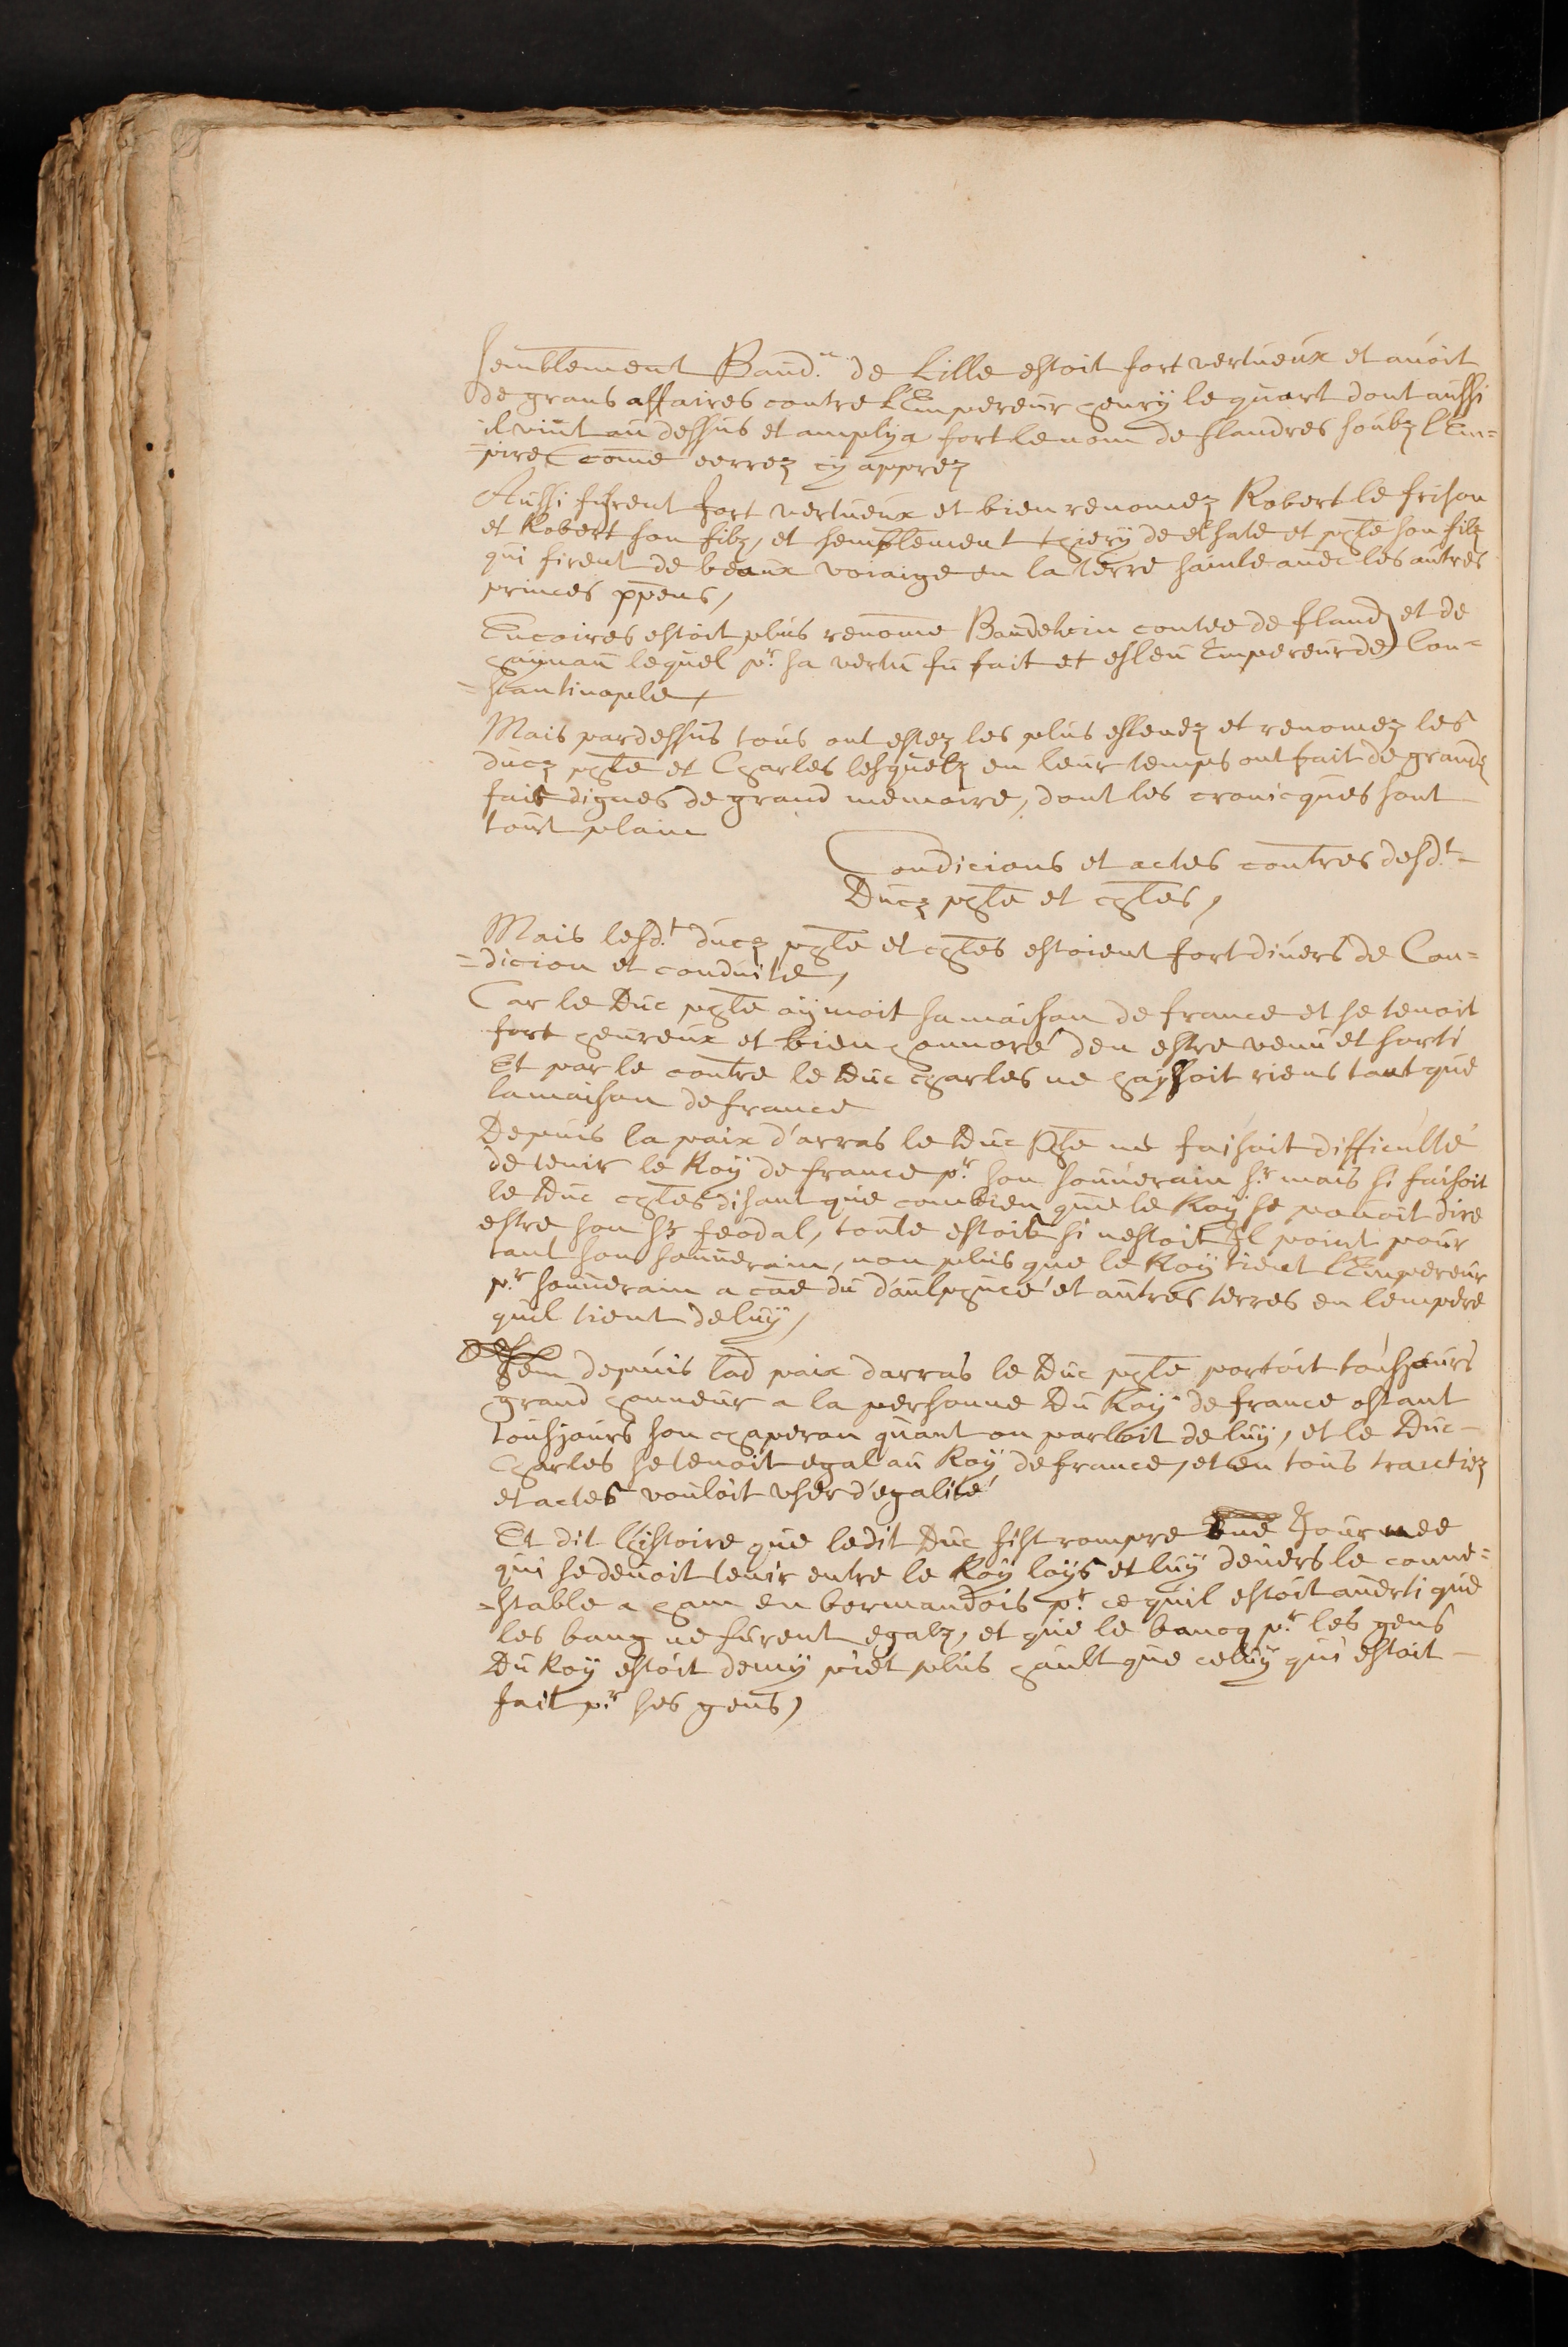 semblement Baud.n de Lille estoit fort vertueux et auoit
de grans affaires contre l'Empereur henrÿ le quart dont aussi
il vint au dessus et amplÿa fort le nom de flandres soubz l'Em=
=pire come verrez cÿ apprez
Aussi furent fort vertueux et bien renomez Robert le frison
et Robert son filz, et semblement thierÿ de elsate et phle son filz
qui firent de beaux voiaige en la terre sainte auec les autres
princes xpens,
Encoires estoit plus renome Baudewin contee de fland et de
haÿnau lequel pr. sa vertu fu fait et esleu Empereur de Con=
=stantinople,
Mais pardessus tous ont estez les plus esleuez et renomez les
ducz phle et Charles lesquelz en leur temps ont fait de grandz
fais dignes de grand memoire, dont les cronicques sont
tout plain
Condicions et actes contres desd.t
Ducz phle et chles,
Mais lesd.t ducz phle et chles estoient fort diuers de Con=
=dicion et conduite,
Car le Duc phle aÿmoit sa maison de france et se tenoit
fort heureux et bien honnoré den estre venu et sorti
Et par le contre le Duc charles ne haÿssoit riens tant que
la maison de france
Depuis la paix d'arras le Duc Phle ne faisoit difficulté
de tenir le Roÿ de france pr. son souuerain sr. mais si faisoit
le Duc chles disant que combien que le Roÿ se pouoit dire
estre son sr feodal, toute estoit si nestoit Il point pour
tant son souuerain, non plus que le Roÿ tient l'Empereur
pr. souuerain a cae du d'aulphiné et autres terres en lempere
quil tient de luÿ,
Item depuis lad paix darras le Duc phle portoit tousjours
grand honneur a la personne Du Roÿ de france ostant
tousjours son chaperon quant on parloit de luÿ, et le Duc
Charles se tenoit egal au Roÿ de france, et en tous traictiez
et actes vouloit vser d'egalité
Et dit l'histoire que ledit Duc fist rompre vne Journee
qui se deuoit tenir entre le Roÿ loÿs et luÿ deuers le conne=
=stable a ham en vermandois pr. ce quil estoit auerti que
les banq ne furent egalz, et que le bancq pr. les gens
Du Roÿ estoit demÿ piet plus hault que celuÿ qui estoit
fait pr. ses gens,